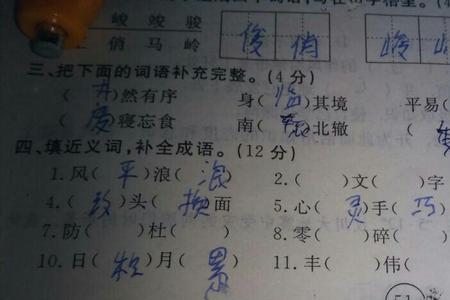 峻 竣 骏
俏 马 岭 俊 俏 峻
三、把下面的词语补充完整。(4分)
(井)然有序 身(临)其境 平易(
(废)寝忘食 南( )北辙 (
四、填近义词,补全成语。(12分)
1.风(平)浪(浪) 2.( )文( )字
4.( )头(换)面 5.心(灵)手(巧)
7.防( )杜( ) 8.零( )碎( )
10.日( )月(累) 11.丰( )伟( )
51